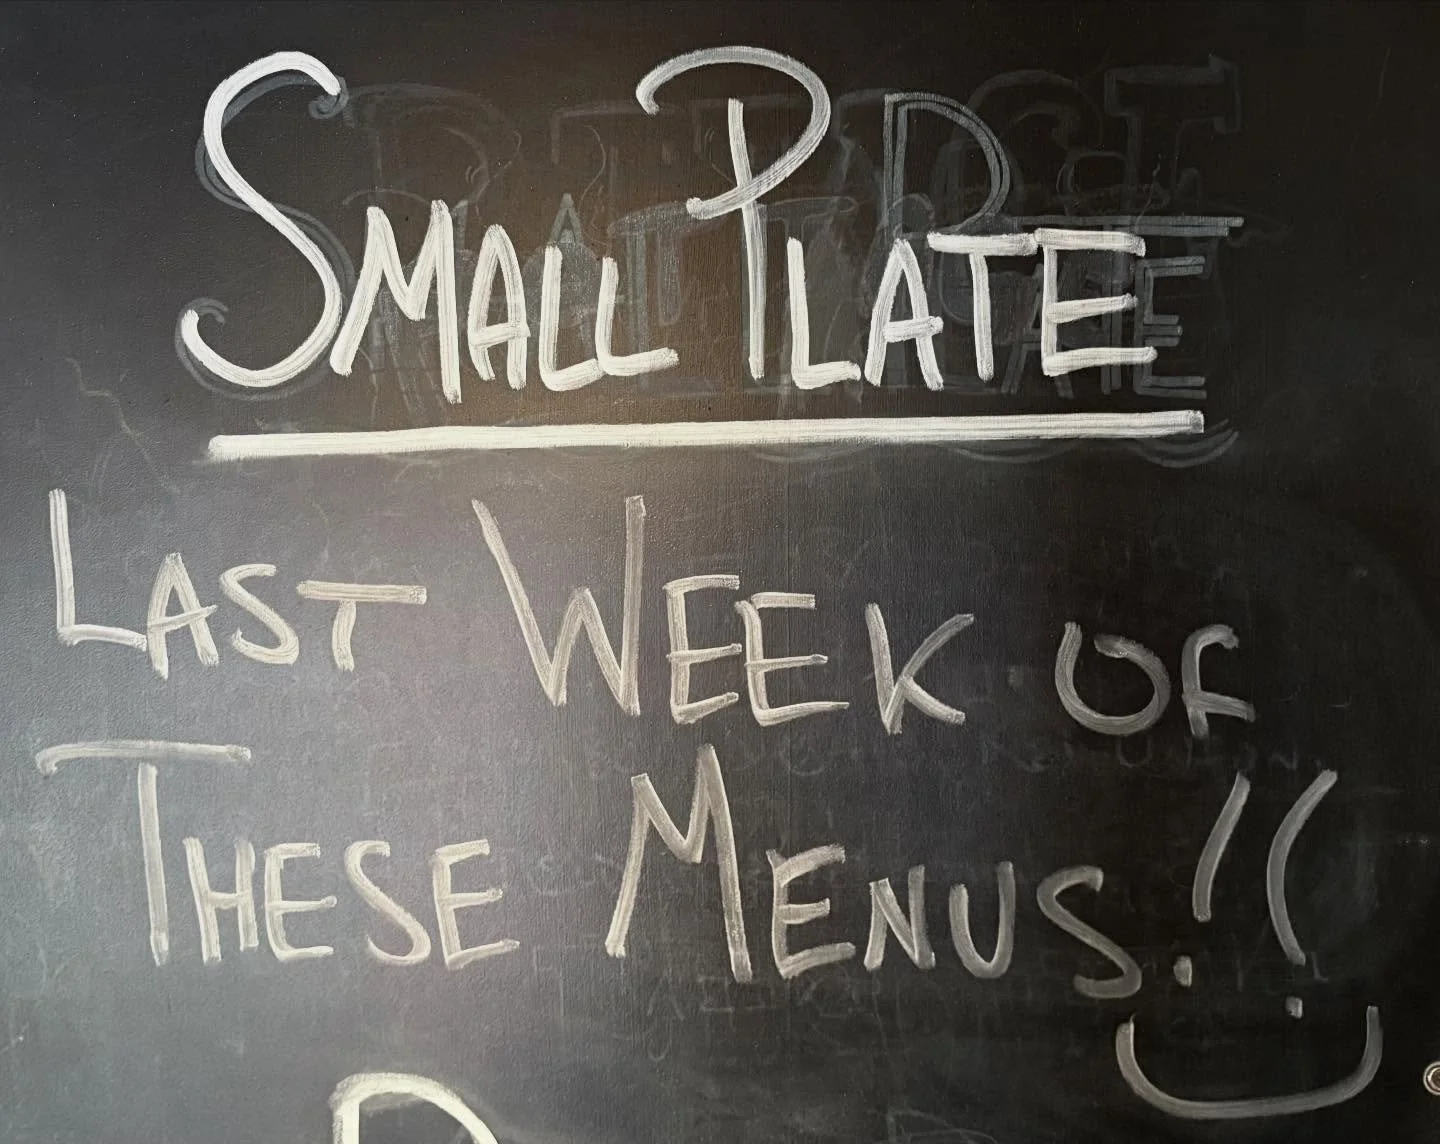 SMALL PLATE
LAST WEEK OF
THESE MENUS!!